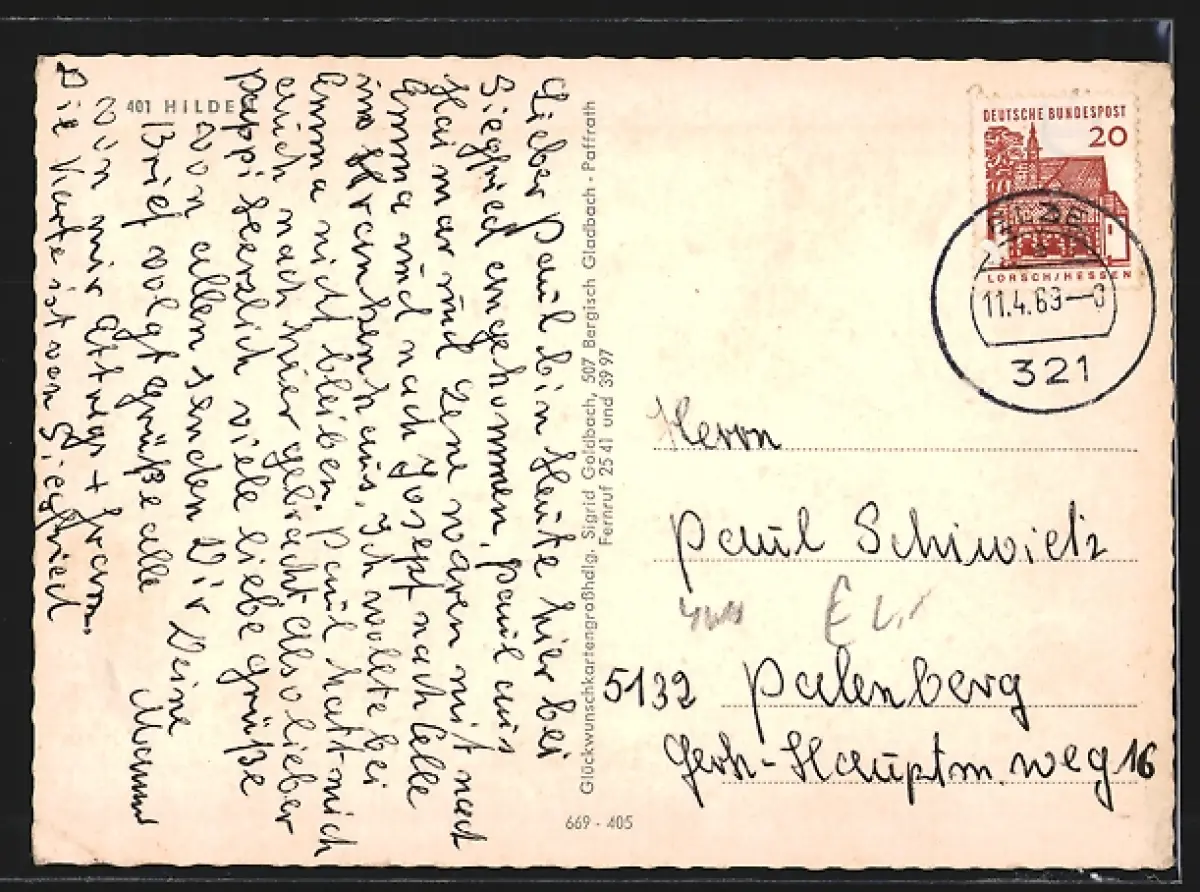 401 HILDE
Lieber Paul bin Heute hier bei
Siegfried angekommen, Paul aus
Haimar und Lene waren mit nach
Emma und nach Josept nach Celle
ins Krankenhaus. Ich wollte bei
Emma nicht bleiben. Paul hatt mich
auch nach hier gebracht also lieber
Pappi Herzlich viele liebe Grüße
von allen senden Dir Deine
Brief volgt Grüße alle Mammi
von mir Ottmar + Fram.
Die Karte ist von Siegfried
Glückwunschkartengroßhdlg. Sigrid Goldbach, 507 Bergisch Gladbach - Paffrath
Fernruf 25 41 und 39 97
669 - 405
DEUTSCHE BUNDESPOST
20
LORSCH/HESSEN
ELZE
11.4.69--0
321
Herrn
Paul Schiwietz
5132 Palenberg
Gerh-Hauptm. weg 16